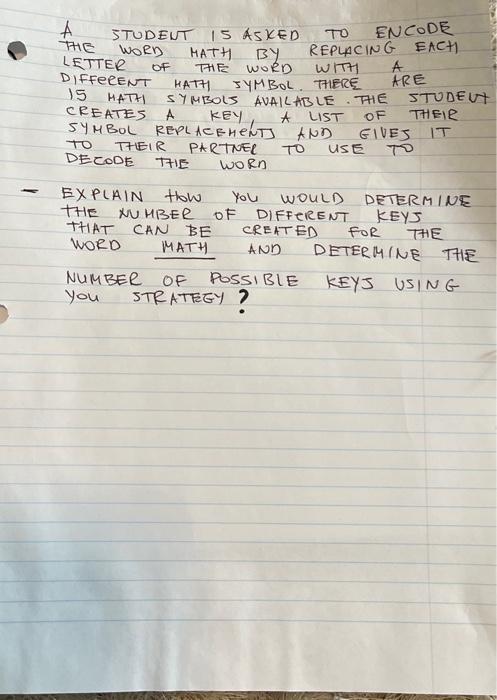 A STUDENT IS ASKED TO ENCODE
THE WORD MATH BY REPLACING EACH
LETTER OF THE WORD WITH A
DIFFERENT MATH SYMBOL. THERE ARE
15 MATH SYMBOLS AVAILABLE. THE STUDENT
CREATES A KEY, A LIST OF THEIR
SYMBOL REPLACEMENTS AND GIVES IT
TO THEIR PARTNER TO USE TO
DECODE THE WORD
- EXPLAIN HOW YOU WOULD DETERMINE
THE NUMBER OF DIFFERENT KEYS
THAT CAN BE CREATED FOR THE
WORD MATH AND DETERMINE THE
NUMBER OF POSSIBLE KEYS USING
YOU STRATEGY ?